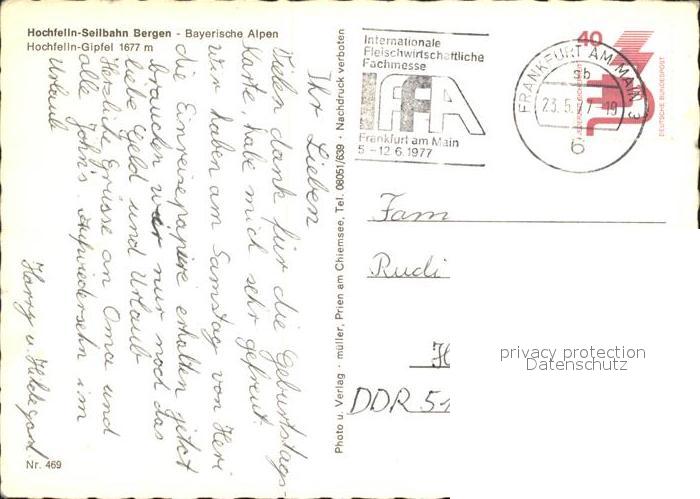 Hochfelln-Seilbahn Bergen - Bayerische Alpen
Hochfelln-Gipfel 1677 m
Ihr Lieben
Vielen dank für die Geburtstags-
karte, habe mich sehr gefreut.
Wir haben am Samstag von Heri
die Einreisepapiere erhalten jetzt
brauchen wir nur noch das
liebe Geld und Urlaub
Herzliche Grüsse an Oma und
alle John's. Aufwiedersehn im
Urlaub
Harry u. Hildegard
Nr. 469
Photo u. Verlag · müller, Prien am Chiemsee, Tel. 08051/639 · Nachdruck verboten
Internationale
Fleischwirtschaftliche
Fachmesse
IFFA
Frankfurt am Main
5.-12.6.1977
FRANKFURT AM MAIN 3
gb
23.5.77-19
b
40
DEUTSCHE BUNDESPOST
Fam
Rudi
DDR 51
privacy protection
Datenschutz